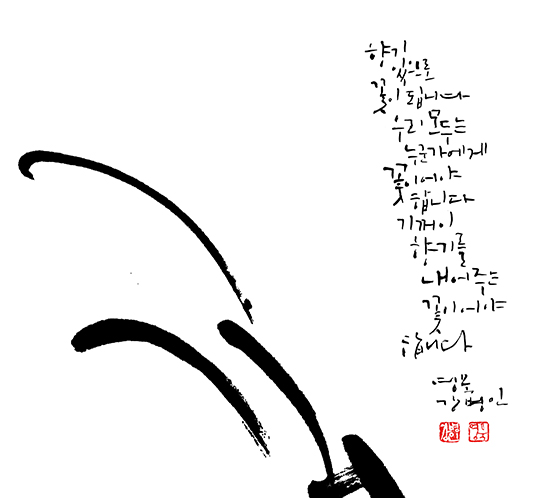 향기
있으로
꽃이 됩니다
우리 모두는
누군가에게
꽃이어야
합니다
기꺼이
향기를
내어주는
꽃이어야
합니다
영묵
강병인